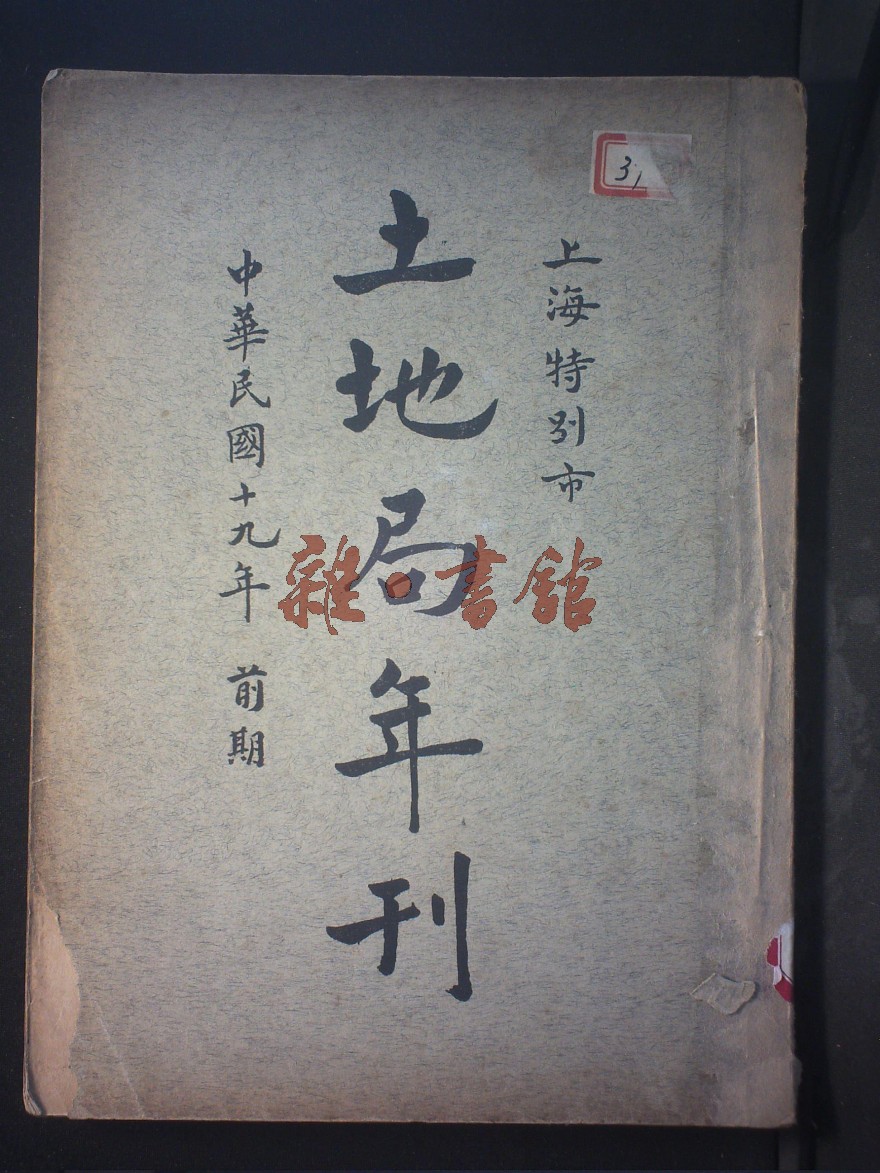 上海特别市
土地局年刊
中華民國十九年 前期
雜·書館
31